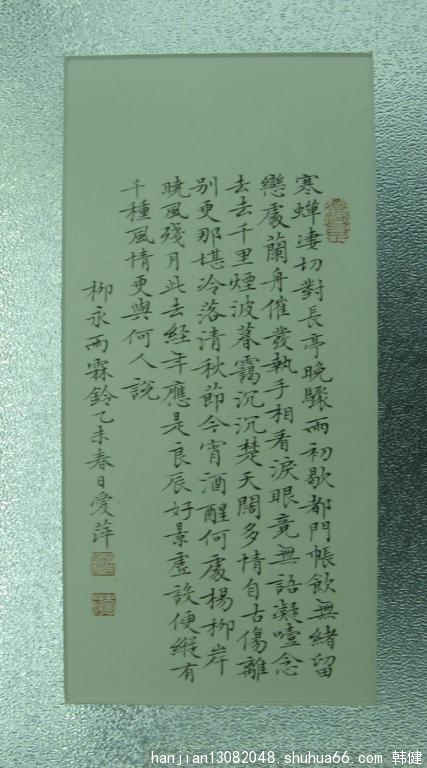 寒蟬淒切對長亭晚驟雨初歇都門帳飲無緒留
戀處蘭舟催發執手相看淚眼竟無語凝噎念
去去千里煙波暮靄沉沉楚天闊多情自古傷離
別更那堪冷落清秋節今宵酒醒何處楊柳岸
曉風殘月此去經年應是良辰好景虛設便縱有
千種風情更與何人說
柳永雨霖鈴乙未春日愛萍
hanjian13082048.shuhua66.com 韩健